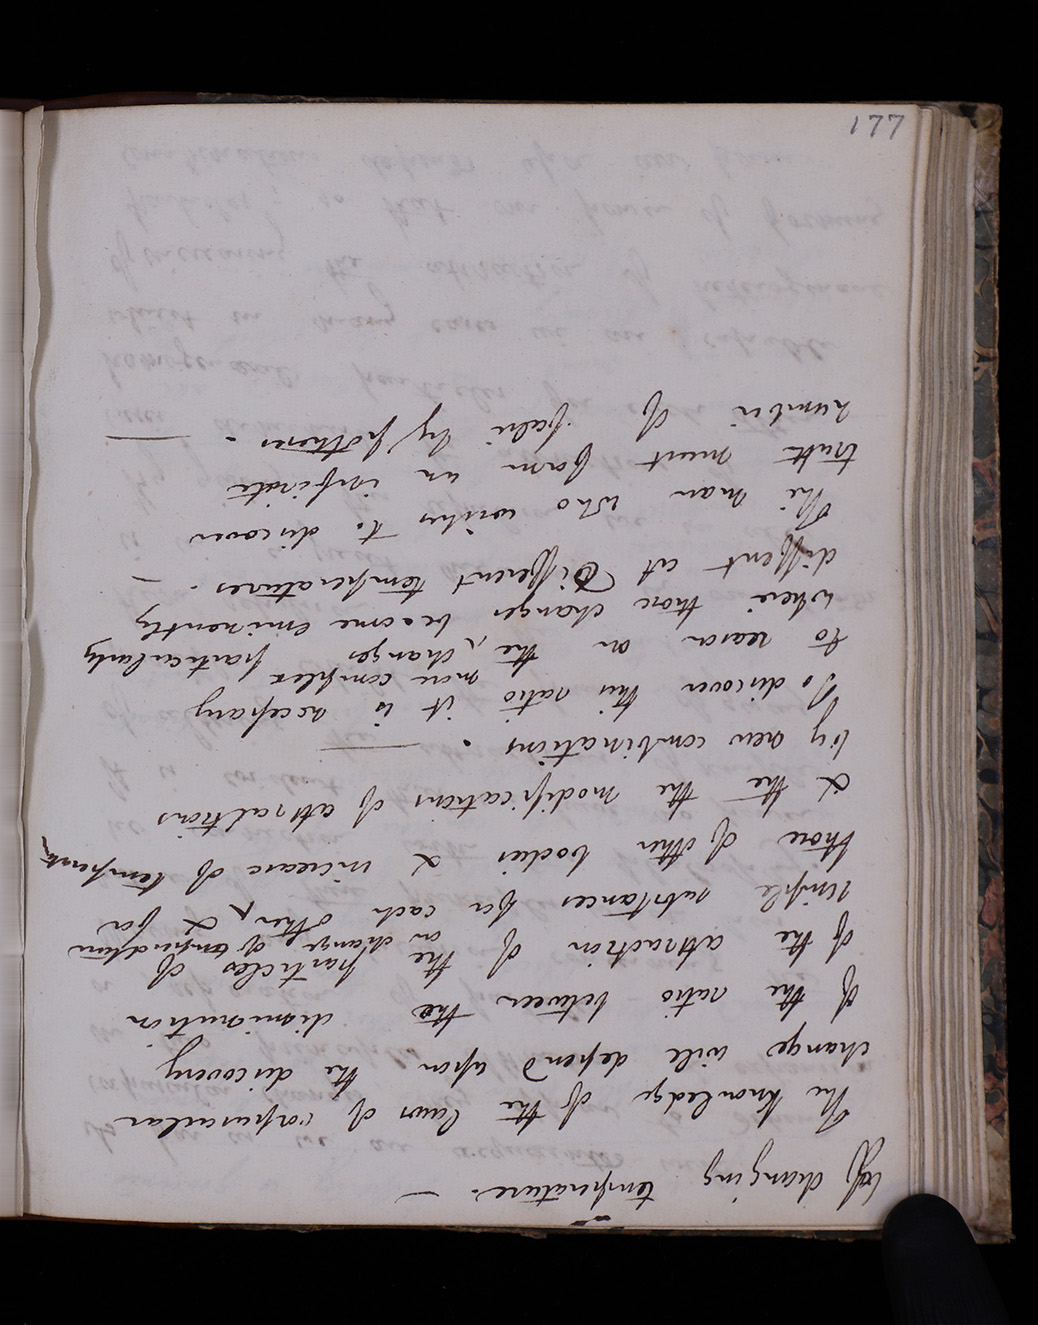 177
of changing temperature. —
The knowledge of the laws of corpuscular
change will depend upon the discovery
of the ratio between the diminution
of the attraction of the particles of
on change of temperature
simple substances for each other & for
those of other bodies & increase of temperature
& the the modifications of attractions
by new combinations . ———
To discover this ratio it is necessary
more complex
to reason on the changes particularly
where those changes become eminently
different at Different temperatures. —
The man who wishes to discover
truth must form an infinite
number of false hypotheses . ———